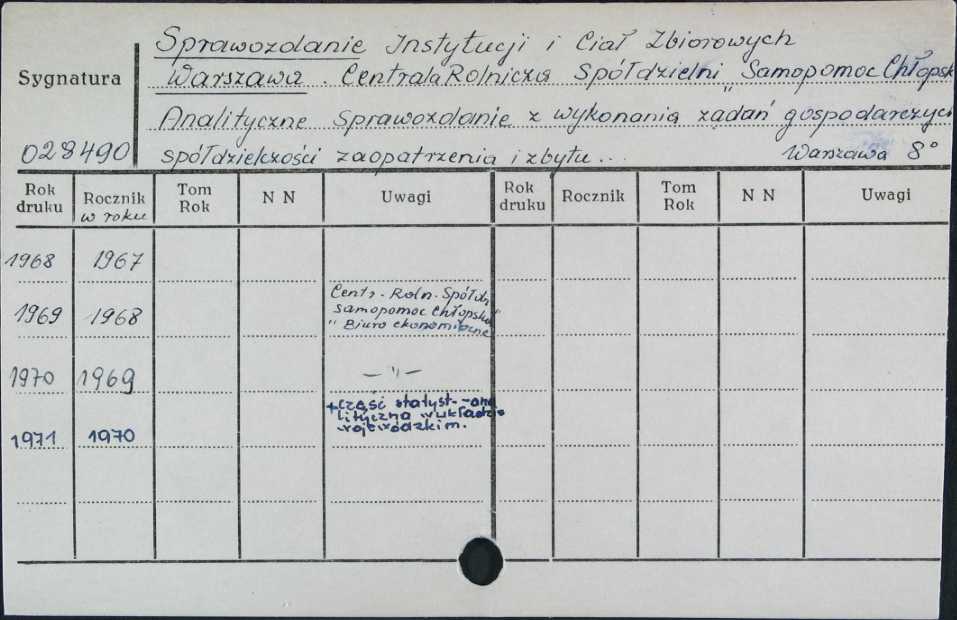 Sprawozdanie Instytucji i Ciał Zbiorowych
Sygnatura
Warszawa. Centrala Rolnicza Spółdzielni "Samopomoc Chłopsk
Analityczne sprawozdanie z wykonania zadań gospodarczych
028490
spółdzielczości zaopatrzenia i zbytu... Warszawa 8°
Rok druku Rocznik w roku Tom Rok N N Uwagi Rok druku Rocznik Tom Rok N N Uwagi
1968 1967
1969 1968 Centr. Roln. Spółdz
Samopomoc Chłopska"
" Biuro ekonomiczne
1970 1969 — " —
1971 1970 + część statyst.-ana
lityczna w układzie
wojewódzkim.